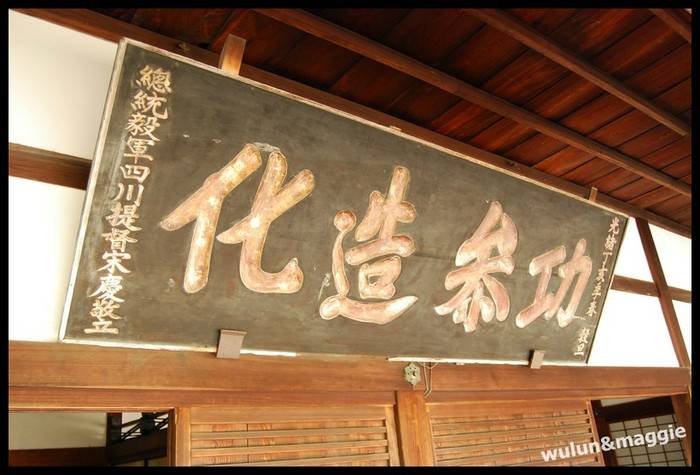 光緒丁亥季春 穀旦
功叅造化
總統毅軍四川提督宋慶敬立
wulun&maggie